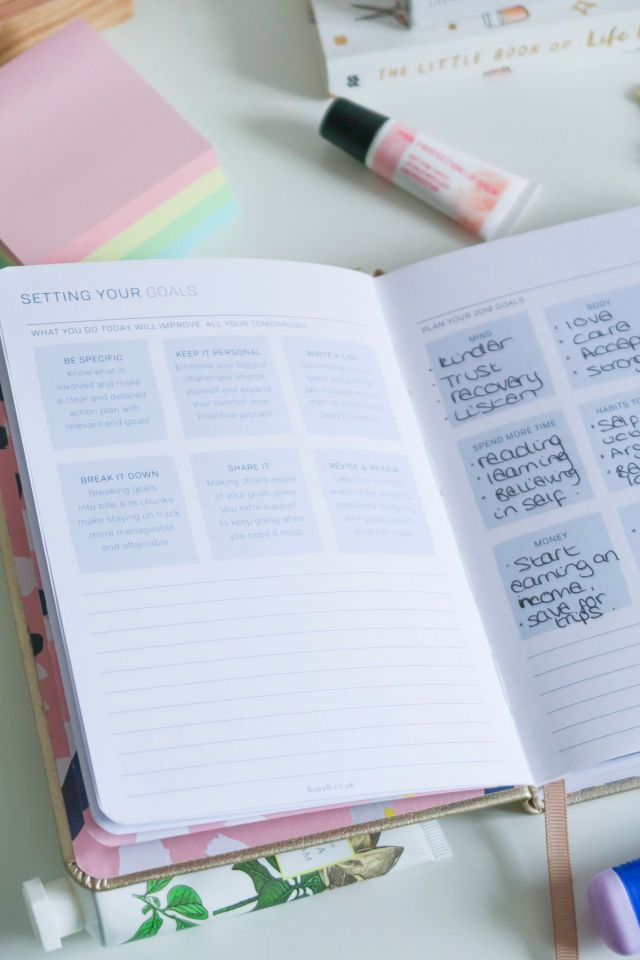 THE LITTLE BOOK OF Life
PROTECTION LIP BALM
SETTING YOUR GOALS
WHAT YOU DO TODAY WILL IMPROVE ALL YOUR TOMORROWS
BE SPECIFIC
Know what is
involved and make
a clear and detailed
action plan with
relevant end goals
KEEP IT PERSONAL
Embrace your biggest
challenges, stretch
yourself and expand
your comfort zone.
Prioritise yourself
WRITE A LIST
BREAK IT DOWN
Breaking goals
into bite-size chunks
make staying on track
more manageable
and attainable
SHARE IT
Making others aware
of your goals gives
you extra support
to keep going when
you need it most
REVISE & REVIEW
Take time to revise
and monitor progress
constantly realigning
your goals against
progress made
BusyB.co.uk
PLAN YOUR 2019 GOALS
MIND
• Kinder
• Trust
• recovery
• Listen
BODY
• love
• care
• Accep
• Strong
SPEND MORE TIME
• reading
• learning
• Believing
in self
HABITS TO
• Self
MONEY
• Start
earning an
income.
• save for
trips.